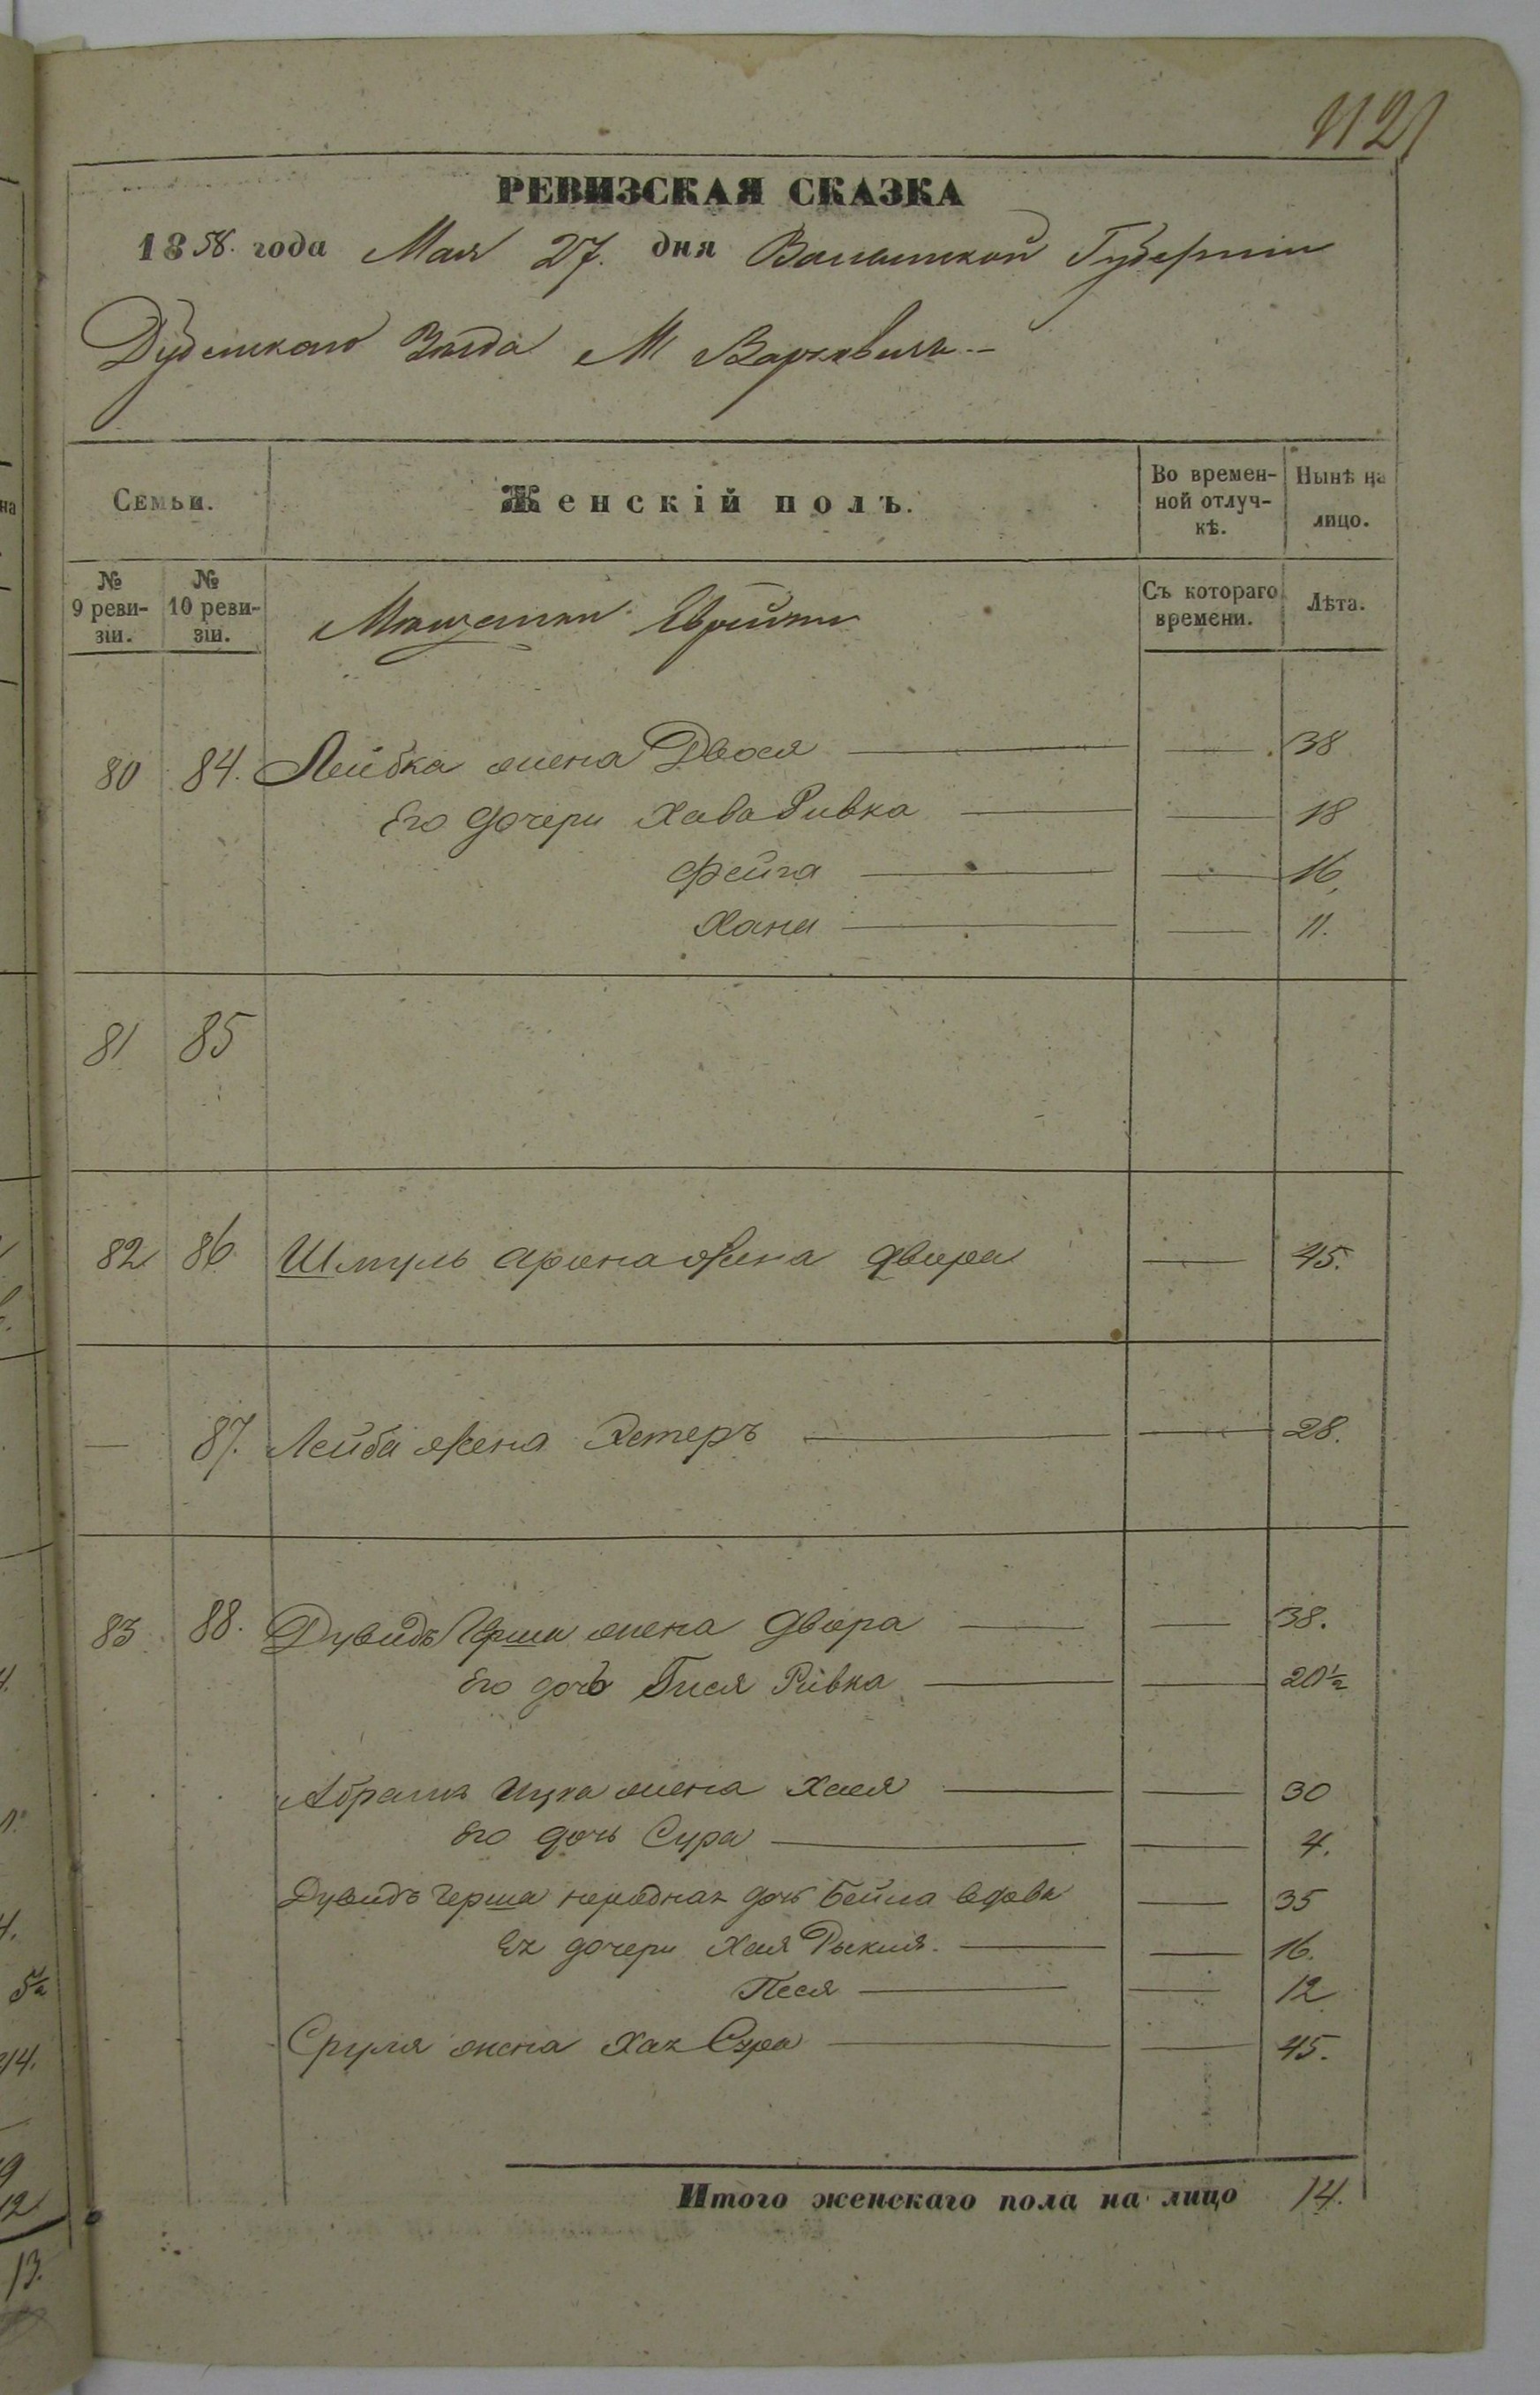 1121
РЕВИЗСКАЯ СКАЗКА
1858. года Мая 27. дня Волынской Губернiи
Дубенскаго Уѣзда М Варковичь
Семьи. Женскій полъ. Во временной отлучкѣ. Нынѣ на лицо.
№ 9 ревизіи. № 10 ревизіи. Мѣщанки Евройки Съ котораго времени. Лѣта.
80 84. Лейбка жена Двося — — 38
Его дочери Хава Ривка — — 18
Фейга — — 16
Хана — — 11.
81 85
82 86 Шмуль Арона жена двора — 45.
— 87. Лейба жена Эстеръ — — 28.
83 88. Дувидъ Герши жена двора — — 38.
Его дочь Гися Ривка — — 20½
Абрамъ Ицка жена Хая — — 30
Его дочь Сура — — 4.
Дувидъ Герша дочь Бейла вдова — 35
Ея дочери Хая — — 16.
Песя — — 12
Сруля жена Хая Сура — — 45.
Итого женскаго пола на лицо 14.